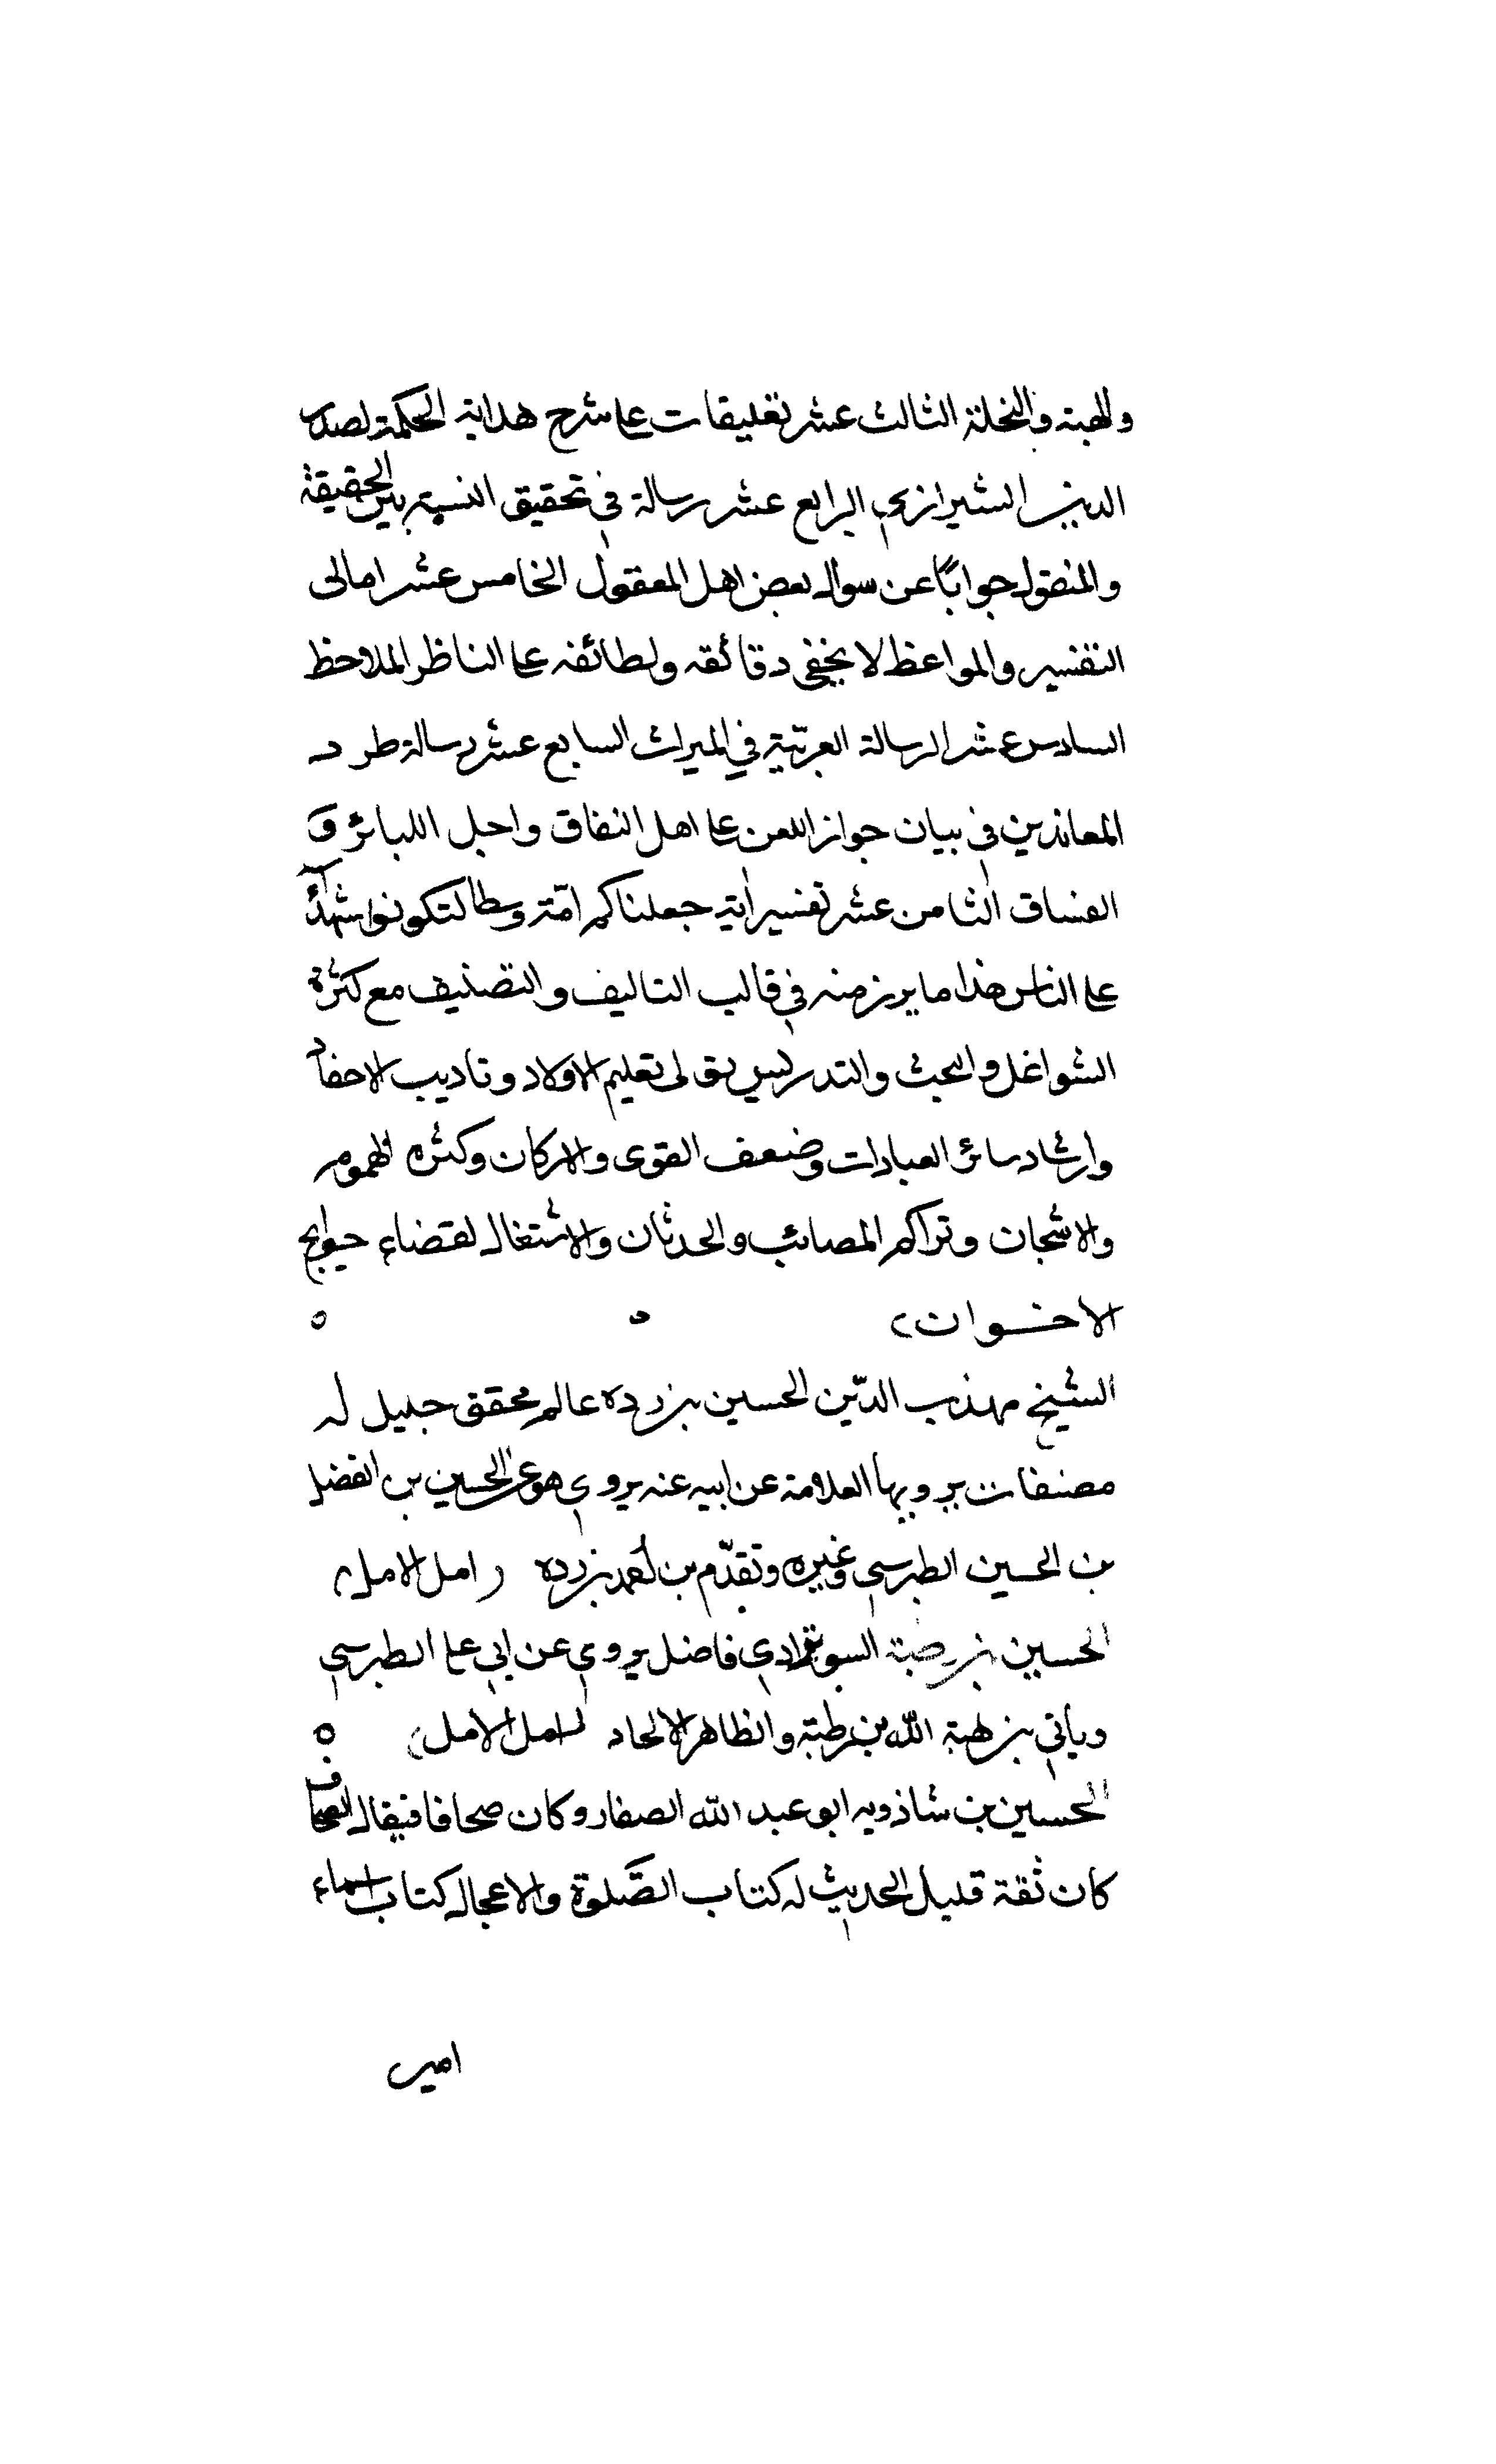 والهبة والنحلة الثالث عشر تعليقات على شرح هداية الحكمة لصدر
الدين الشيرازي الرابع عشر رسالة في تحقيق النسبة بين الحقيقة
والمنقول جوابًا عن سوال بعض اهل المعقول الخامس عشر امالى
التفسير والمواعظ لا يخفى دقائقه ولطائفه على الناظر الملاحظ
السادس عشر الرسالة العربّية في الميراث السابع عشر رسالة طرد
المعاندين في بيان جواز اللعن على اهل النفاق واجل اللبائز و
الفساق الثامن عشر تفسير اية جعلناكم امّة وسطا لتكونوا شهدآء
على الناس هذا ما برز منه في قالب التاليف والتصنيف مع كثرة
الشواغل والبحث والتدريس بق لى تعليم الاولاد وتاديب الاحفاد
وارشاد سائر العبادات وضعف القوى والاركان وكثره الهموم
والاشجان وتراكم المصائب والحدثان والاشتغال لقضاء حوايج
الاخوان
الشيخ مهذب الدّين الحسين بن رده عالم محقق جليل له
مصنفات يرويها العلامة عن ابيه عنه يروي هو عن الحسين بن الفضل
بن الحسين الطبرسي وغيره وتقدّم بن احمد بن رده امل الامل
الحسين بن رطبة السوراوي فاضل يروي عن ابي على الطبرسي
وياتي بن هبة الله بن رطبة والظاهر الاتحاد امل الامل
الحسين بن شاذويه ابو عبد الله الصفار وكان صحافا فيقال الصحاف
كان ثقة قليل الحديث له كتاب الصّلوة والاعمال كتاب اسماء
امير